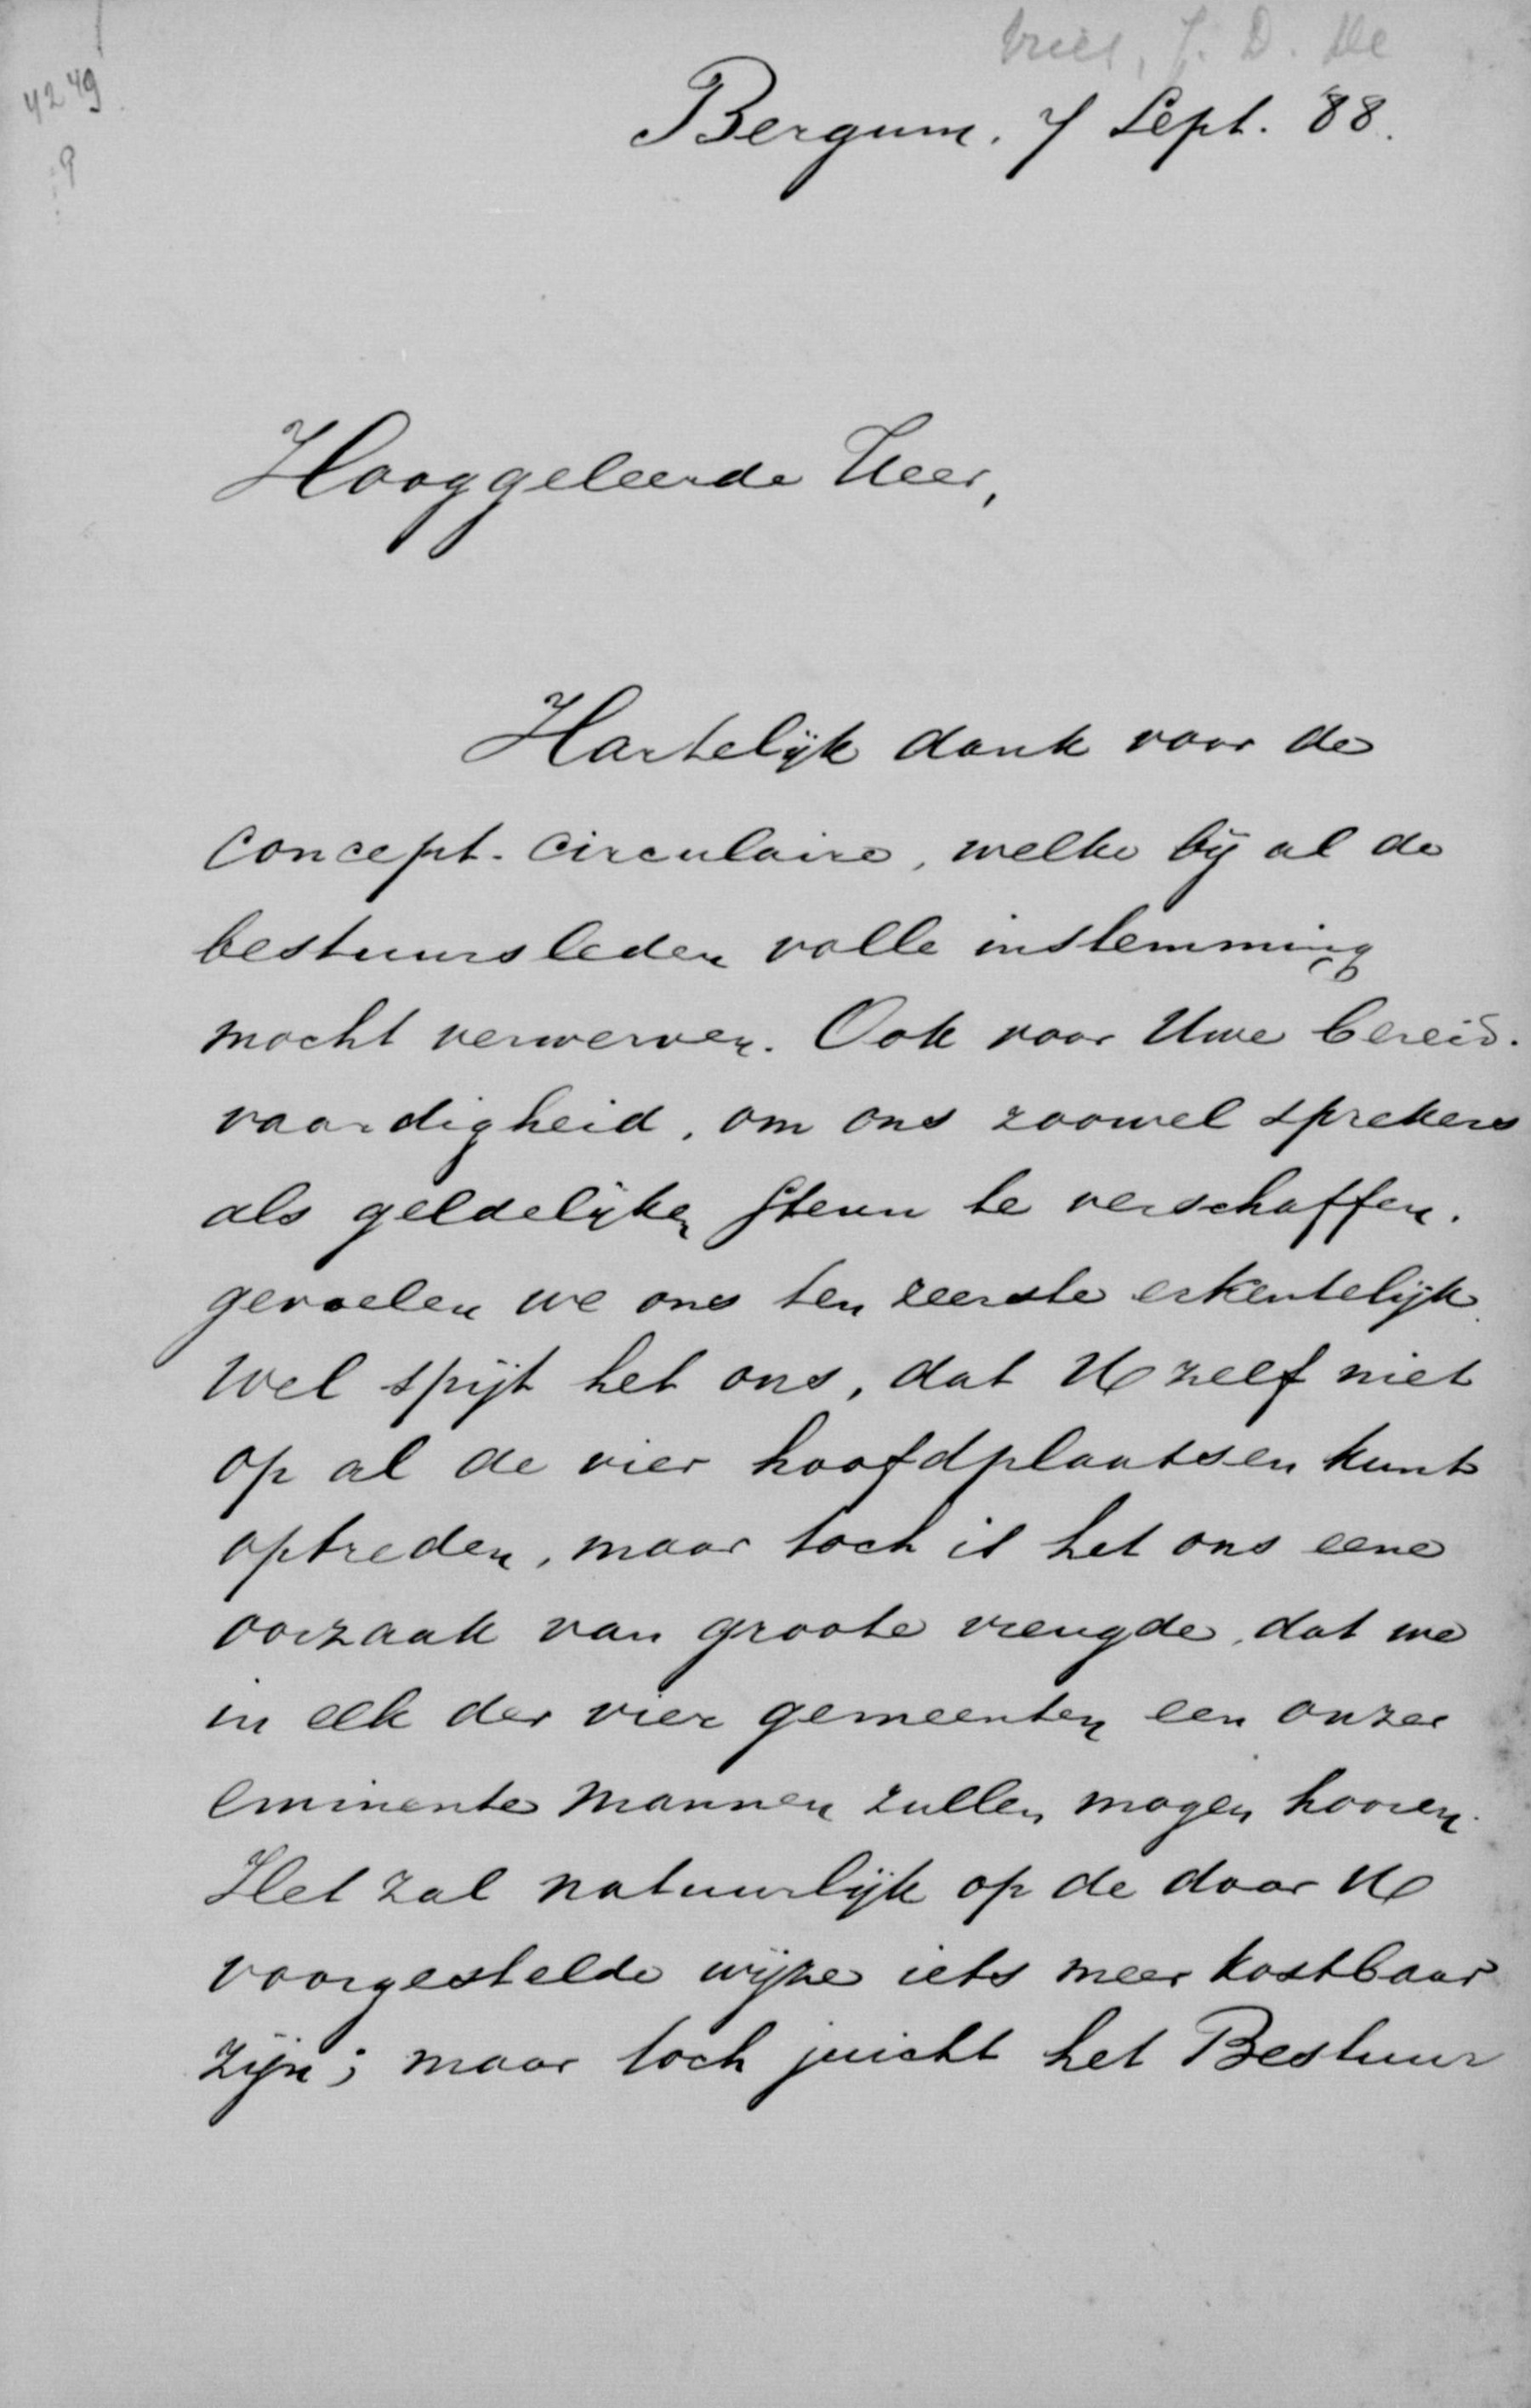 Vries, J. D. de
4249
Bergum. 7 Sept. 88.
Hooggeleerde Heer,
Hartelijk dank voor de
concept-circulaire, welke bij al de
bestuursleden volle instemming
mocht verwerven. Ook voor Uwe bereid-
vaardigheid, om ons zoowel sprekers
als geldelijken steun te verschaffen,
gevoelen we ons ten zeerste erkentelijk.
Wel spijt het ons, dat U zelf niet
op al de vier hoofdplaatsen kunt
optreden, maar toch is het ons eene
oorzaak van groote vreugde, dat we
in elk der vier gemeenten een onzer
eminente mannen zullen mogen hooren.
Het zal natuurlijk op de door U
voorgestelde wijze iets meer kostbaar
zijn; maar toch juicht het Bestuur